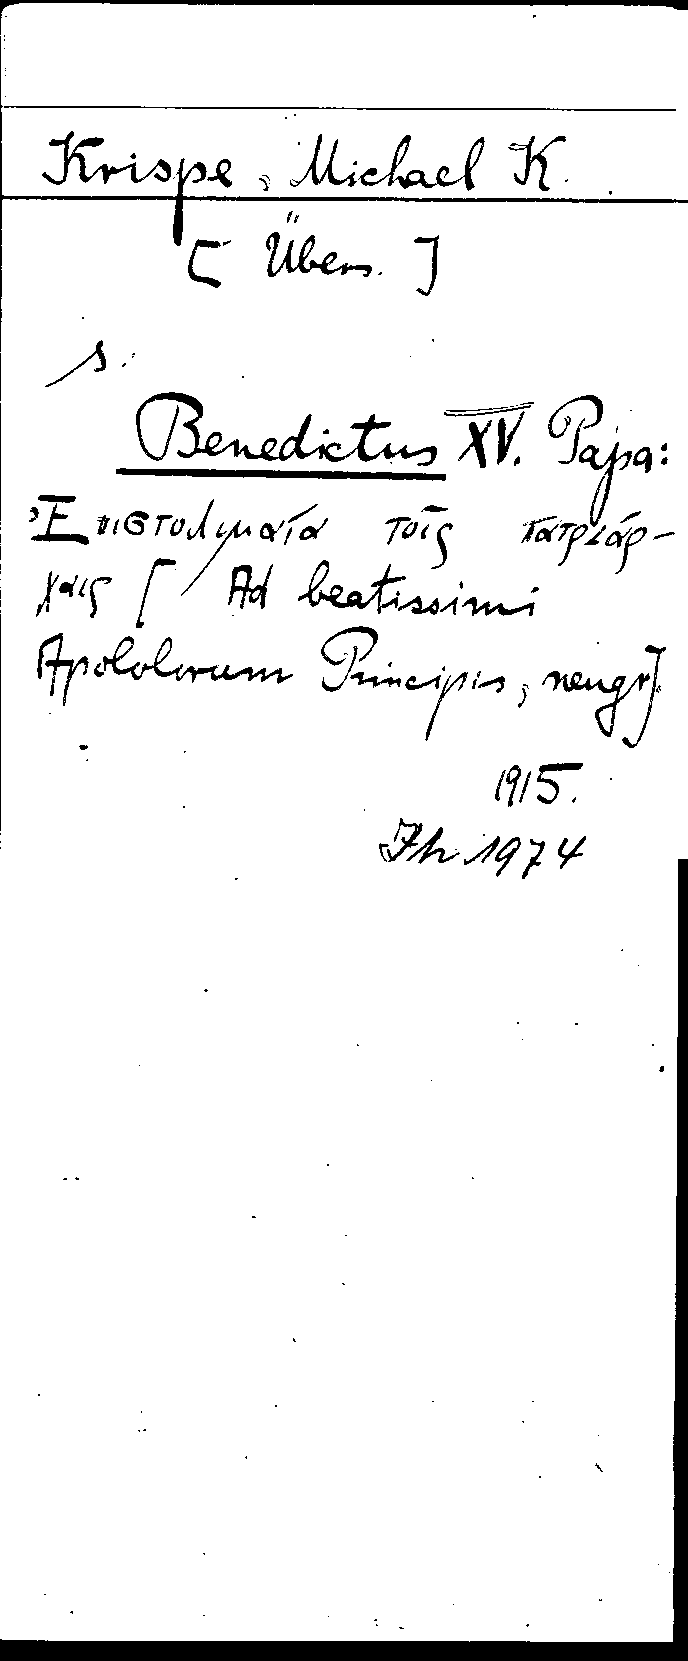 Krispe, Michael K.
[Übers.]
s.
Benedictus XV. Papa:
Ἐπιστολιμαῖα τοῖς πατριάρ-
χαις [Ad beatissimi
Apostolorum Principis, neugr].
1915.
Zh 1974